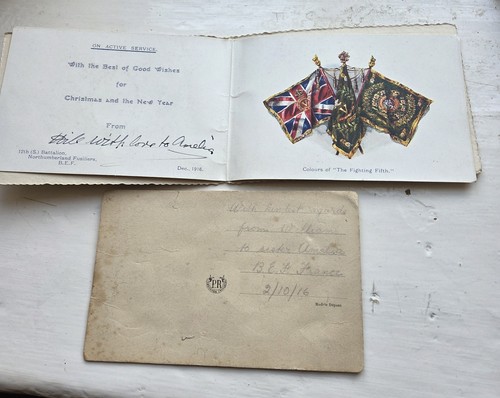 ON ACTIVE SERVICE.
With the Best of Good Wishes
for
Christmas and the New Year
From
with love to Amelia
12th (S.) Battalion,
Northumberland Fusiliers,
B.E.F.
Dec., 1916.
Colours of "The Fighting Fifth."
With kindest regards
from William
to sister Amelia
B.E.F. France
2/10/16
PR